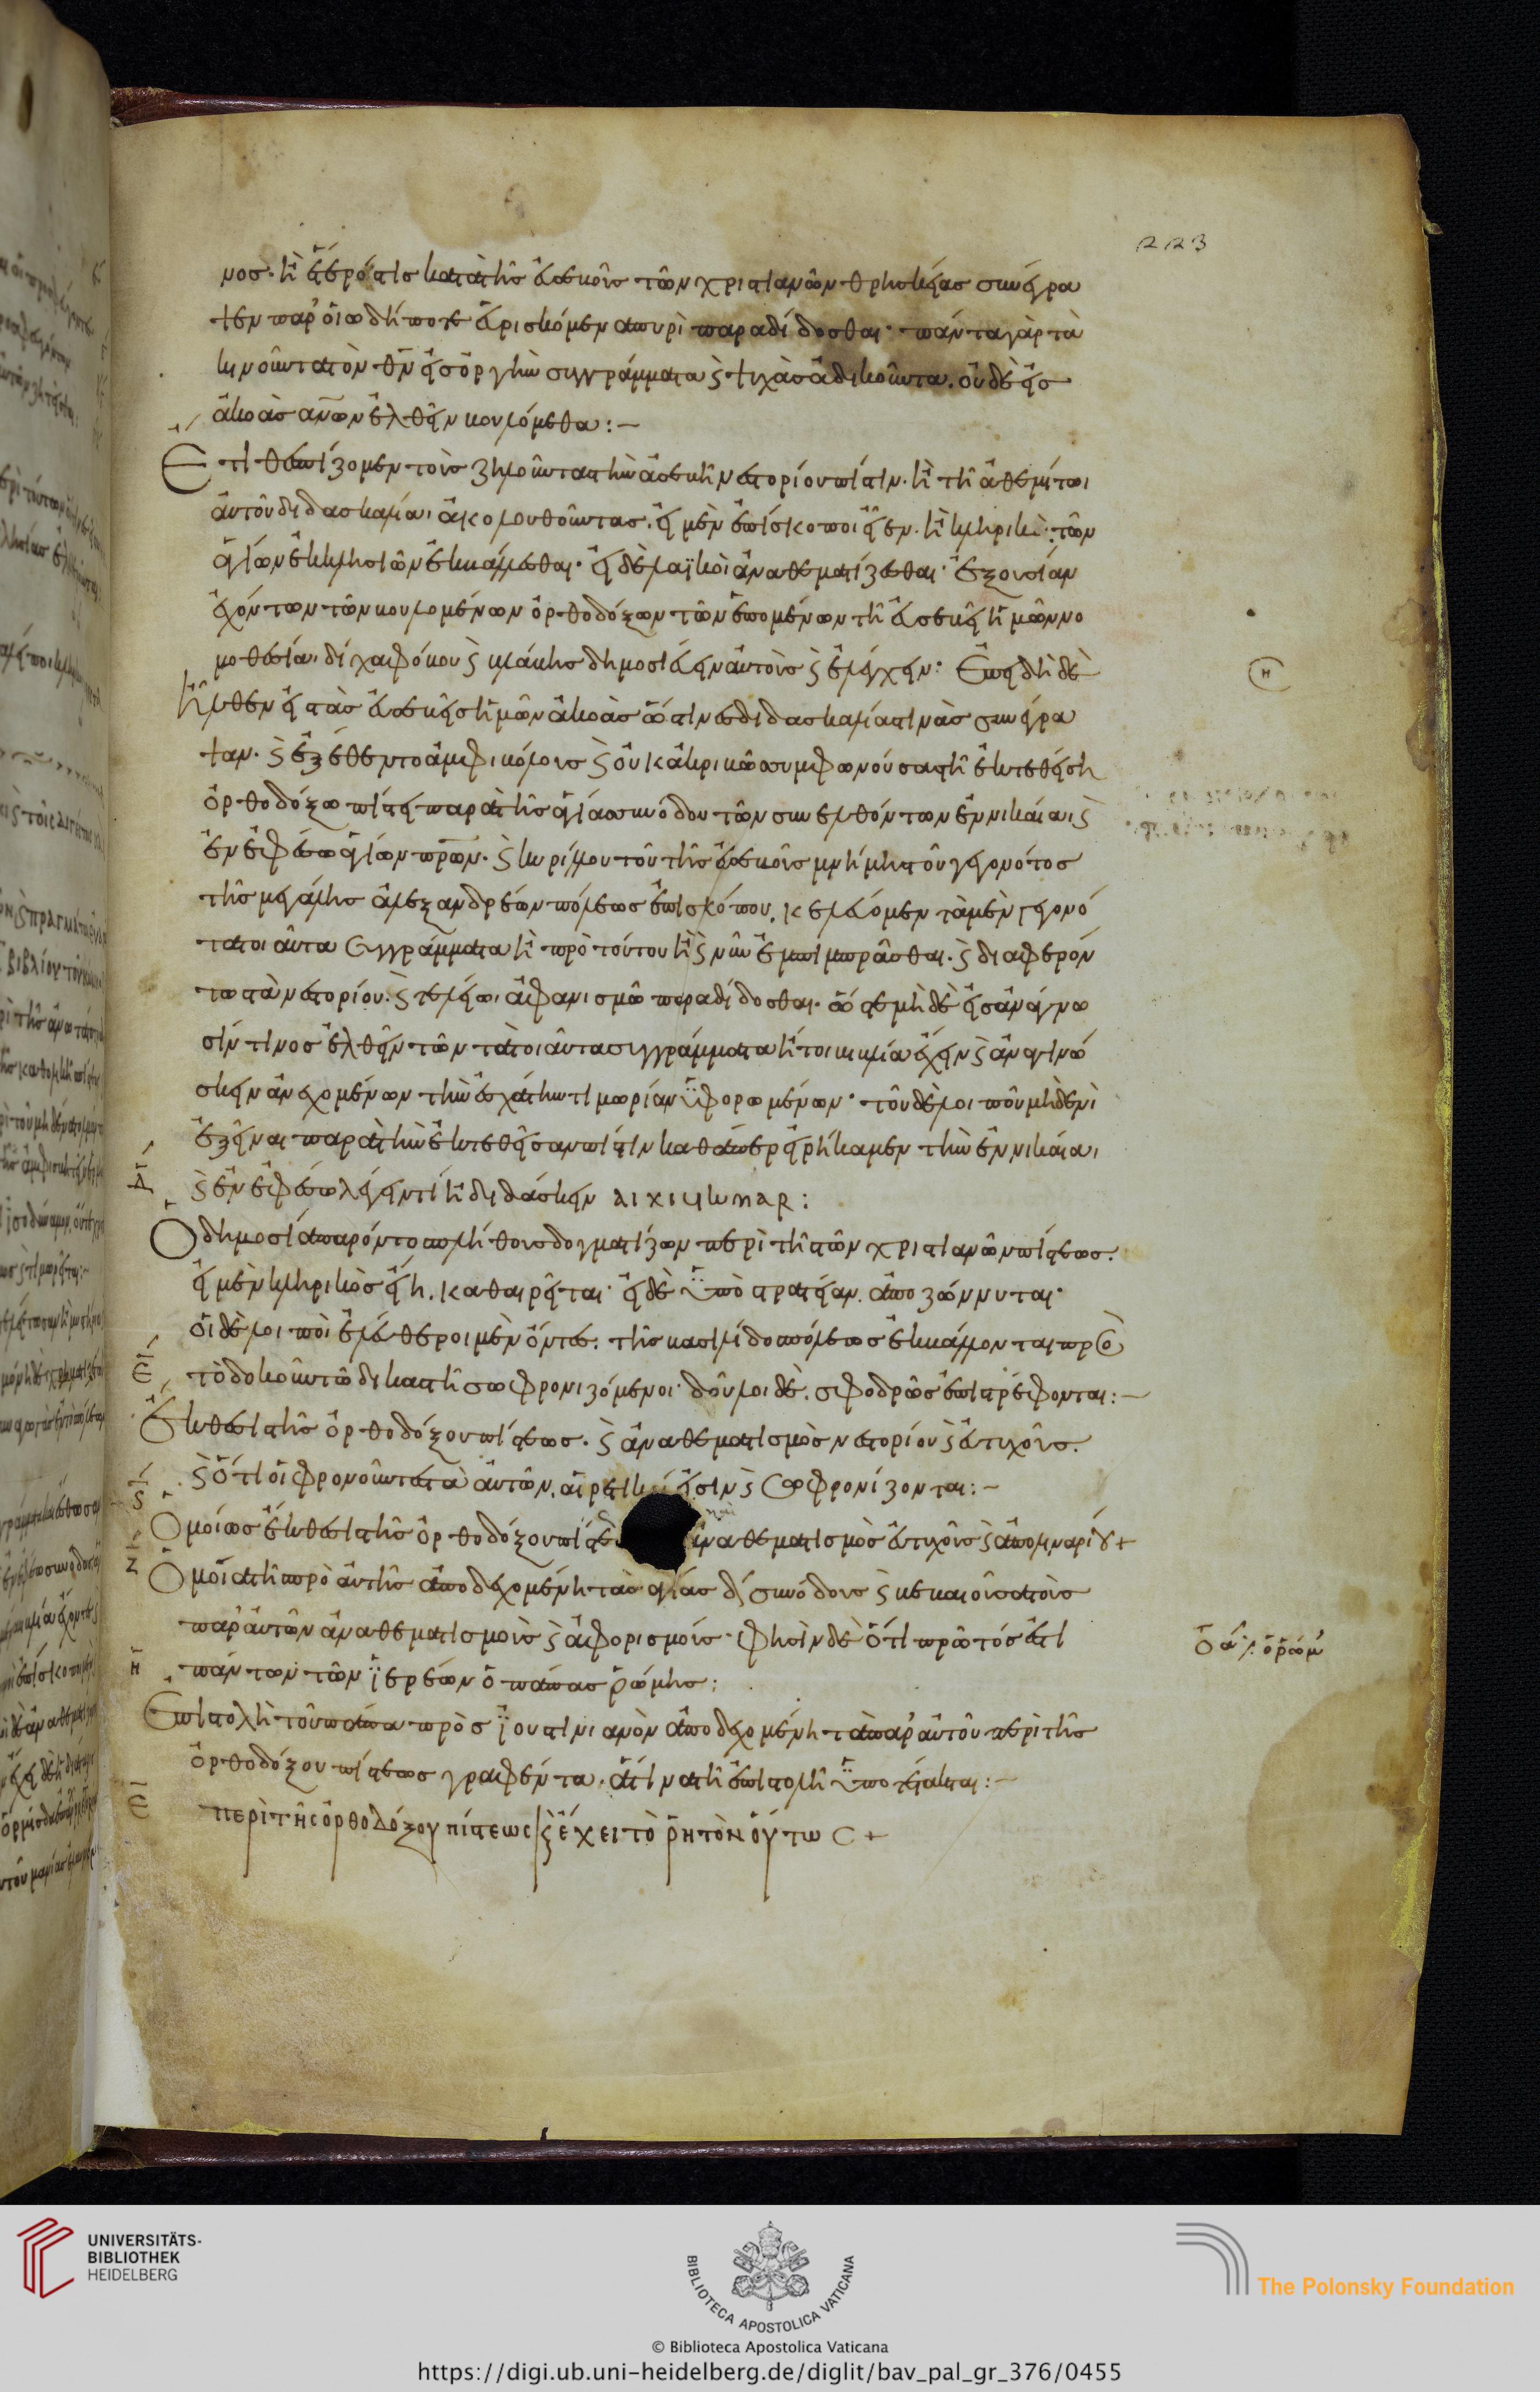 223
νος· ἢ ἕτερός τις κατὰ τῆς εὐσεβοῦς τῶν χριστιανῶν θρησκείας συνέγρα
ψεν παρ' οἱωδήποτε εὑρισκόμενα πυρὶ παραδίδοσθαι· πάντα γὰρ τὰ
κινοῦντα τὸν θν εἰς ὀργὴν συγγράμματα ϗ ψυχὰς ἀδικοῦντα. οὐδὲ εἰς
ἀκοὰς ανων ἐλθεῖν βουλόμεθα:—
Ετι θεσπίζομεν τοὺς ζηλοῦντας τὴν ἀσεβῆ νεστορίου πίστιν. ἢ τῆ ἀθεμίτωι
αὐτοῦ διδασκαλίαι ἀκολουθοῦντας. εἰ μὲν ἐπίσκοποι εἶεν. ἢ κληρικοὶ· τῶν
ἁγίων ἐκκλησιῶν ἐκβάλλεσθαι· εἰ δὲ λαϊκοὶ ἀναθεματίζεσθαι· ἐξουσίαν
ἐχόντων τῶν βουλομένων ὀρθοδόξων τῶν ἑπομένων τῆ εὐσεβεῖ ἡμῶν νο
μοθεσίαι δίχα φόβου ϗ βλάβης δημοσιεύειν αὐτοὺς ϗ ἐλέγχειν: Ἐπειδὴ δὲ
ἦλθεν εἰς τὰς εὐσεβεῖς ἡμῶν ἀκοὰς ὥς τινες διδασκαλίας τινὰς συνέγρα
ψαν. ϗ ἐξέθεντο ἀμφιβόλους ϗ οὐκ ἀκριβῶς συμφωνούσας τῆ ἐκτεθείση
ὀρθοδόξω πίστει παρὰ τῆς ἁγίας συνόδου τῶν συνελθόντων ἐν νικαίαι ϗ
ἐν ἐφέσω ἁγίων πρων. ϗ κυρίλλου τοῦ τῆς εὐσεβοῦς μνήμης τοῦ γεγονότος
τῆς μεγάλης ἀλεξανδρέων πόλεως ἐπισκόπου. κελεύομεν τὰ μὲν γεγονό
τα τοιαῦτα συγγράμματα ἢ πρὸ τούτου ἢ ϗ νῦν ἐμπίμπρασθαι. ϗ διαφερόν
τως τὰ νεστορίου. ϗ τελείωι ἀφανισμῶ παραδίδοσθαι. ὥστε μὴ δὲ εἰς ἀνάγνω
σίν τινος ἐλθεῖν τῶν τὰ τοιαῦτα συγγράμματα ἢ τοι βιβλία ἔχειν ϗ ἀναγινώ
σκειν ἀνεχομένων τὴν ἐσχάτην τιμωρίαν ὑφορωμένων· τοῦ δὲ λοιποῦ μηδενὶ
ἐξεῖναι παρὰ τὴν ἐκτεθεῖσαν πίστιν καθάπερ εἰρήκαμεν τὴν ἐν νικαίαι
ϗ ἐν ἐφέσω λέγειν τί ἢ διδάσκειν
Δ
Ο δημοσία παρόντος πλήθους δογματίζων περὶ τῆς τῶν χριστιανῶν πίστεως.
εἰ μὲν κληρικὸς εἴη. καθαιρεῖται· εἰ δὲ ὑπὸ στρατείαν. ἀποζώννυται·
οἱ δὲ λοιποὶ ἐλεύθεροι μὲν ὄντες. τῆς βασιλίδος πόλεως ἐκβάλλονται πρὸς
τὸ δοκοῦν τῶ δικαστῆ σωφρονιζόμενοι· δοῦλοι δὲ. σφοδρῶς ἐπιστρέφονται:—
Ε
Ἔκθεσις τῆς ὀρθοδόξου πίστεως. ϗ ἀναθεματισμὸς νεστορίου ϗ εὐτυχοῦς.
ϗ ὅτι οἱ φρονοῦντες τὰ αὐτῶν, αἱρετικοί εἰσιν ϗ σωφρονίζονται:—
Ϛ
Ομοίως ἔκθεσις τῆς ὀρθοδόξου πίστεως ἀναθεματισμὸς εὐτυχοῦς ϗ ἀπολιναρίου +
Ζ
Ομοία τῆ πρὸ αὐτῆς ἀποδεχομένη τὰς ἁγίας δ συνόδους ϗ βεβαιοῦσα τοὺς
παρ' αὐτῶν ἀναθεματισμοὺς ϗ ἀφορισμούς· φησὶν δὲ ὅτι πρῶτός ἐστι
πάντων τῶν ἱερέων ὁ πάπας ῥώμης:
Η
Ἐπιστολὴ τοῦ πάπα πρὸς ἰουστινιανὸν ἀποδεχομένη τὰ παρ' αὐτοῦ περὶ τῆς
ὀρθοδόξου πίστεως γραφέντα. ἅτινα τῆ ἐπιστολῆ ὑπο τέτακται:—
Ε
περὶ τῆς ὀρθοδόξου πίστεως ϗ ἔχει τὸ ῥητὸν οὕτως +
UNIVERSITÄTS-
BIBLIOTHEK
HEIDELBERG
BIBLIOTECA APOSTOLICA VATICANA
The Polonsky Foundation
© Biblioteca Apostolica Vaticana
https://digi.ub.uni-heidelberg.de/diglit/bav_pal_gr_376/0455